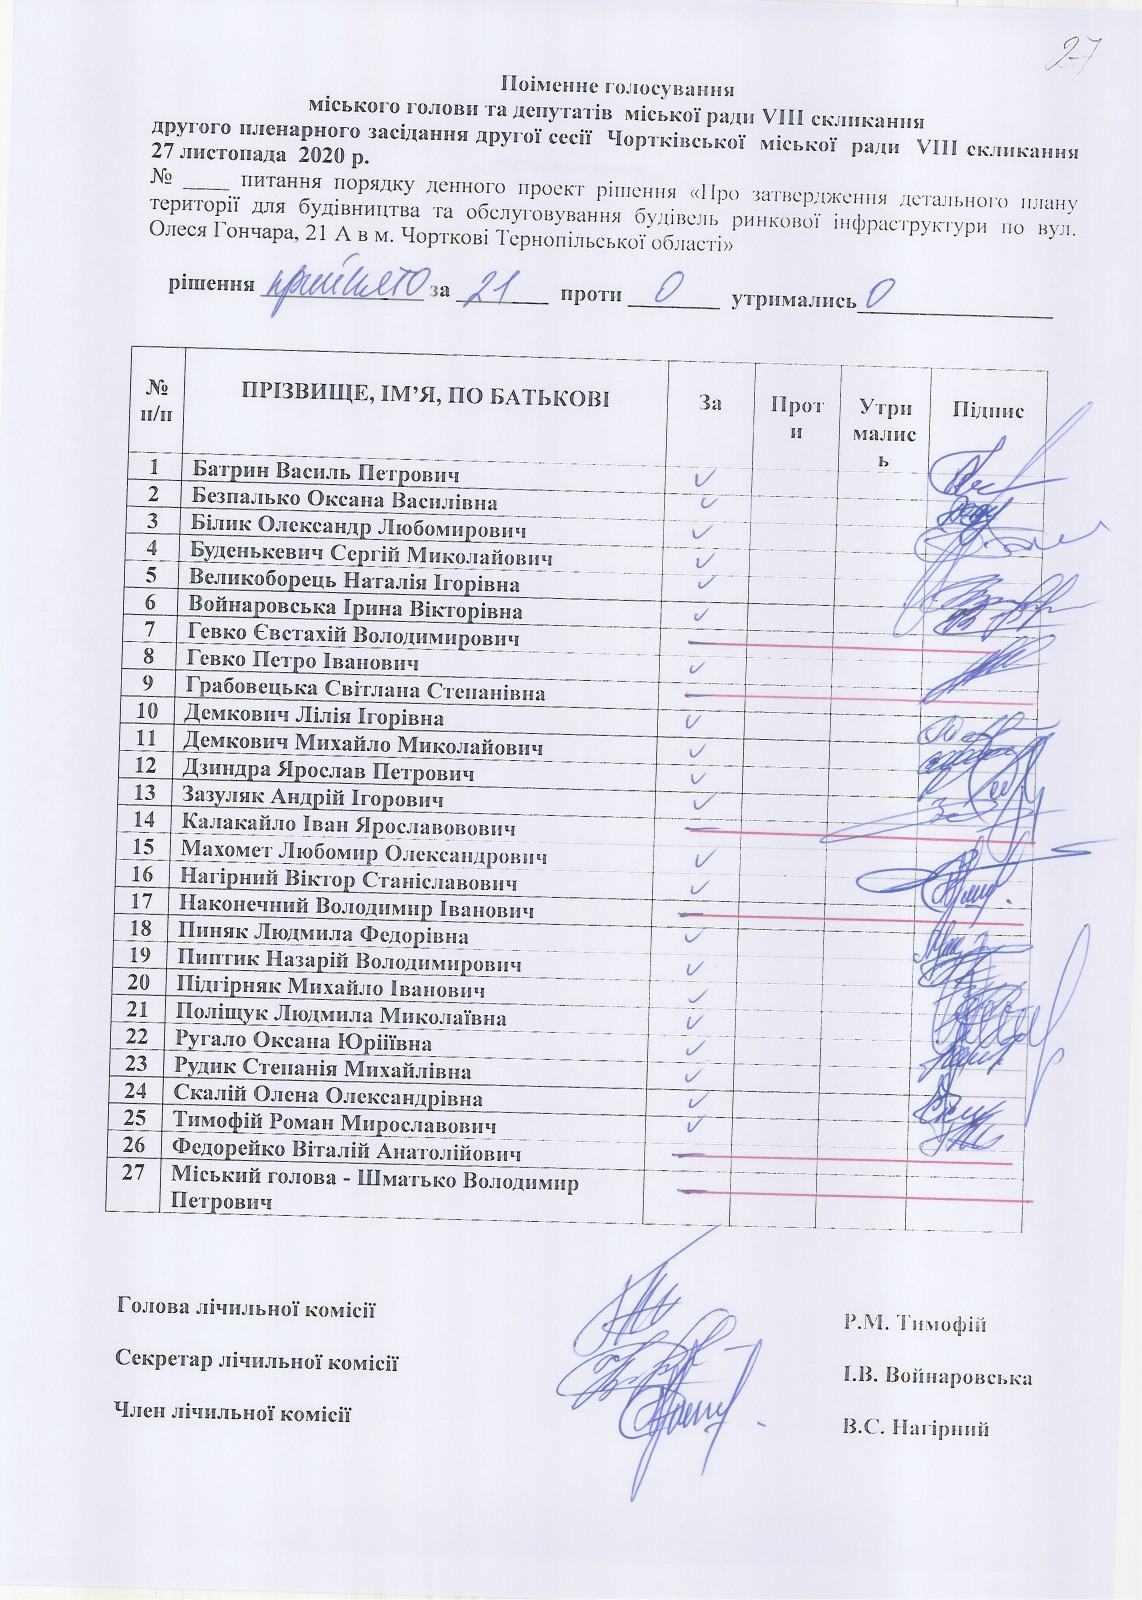 27
Поіменне голосування
міського голови та депутатів міської ради VІІІ скликання
другого пленарного засідання другої сесії Чортківської міської ради VІІІ скликання
27 листопада 2020 р.
№ ____ питання порядку денного проект рішення «Про затвердження детального плану
території для будівництва та обслуговування будівель ринкової інфраструктури по вул.
Олеся Гончара, 21 А в м. Чорткові Тернопільської області»
рішення прийнято за 21 проти 0 утримались 0
№ п/п ПРІЗВИЩЕ, ІМ’Я, ПО БАТЬКОВІ За Проти Утримались Підпис
1 Батрин Василь Петрович ✓
2 Безпалько Оксана Василівна ✓
3 Білик Олександр Любомирович ✓
4 Буденькевич Сергій Миколайович ✓
5 Великоборець Наталія Ігорівна ✓
6 Войнаровська Ірина Вікторівна ✓
7 Гевко Євстахій Володимирович
8 Гевко Петро Іванович ✓
9 Грабовецька Світлана Степанівна
10 Демкович Лілія Ігорівна ✓
11 Демкович Михайло Миколайович ✓
12 Дзиндра Ярослав Петрович ✓
13 Зазуляк Андрій Ігорович ✓
14 Калакайло Іван Ярославовович
15 Махомет Любомир Олександрович ✓
16 Нагірний Віктор Станіславович ✓
17 Наконечний Володимир Іванович
18 Пиняк Людмила Федорівна ✓
19 Пиптик Назарій Володимирович ✓
20 Підгірняк Михайло Іванович ✓
21 Поліщук Людмила Миколаївна ✓
22 Ругало Оксана Юріїївна ✓
23 Рудик Степанія Михайлівна ✓
24 Скалій Олена Олександрівна ✓
25 Тимофій Роман Мирославович ✓
26 Федорейко Віталій Анатолійович
27 Міський голова - Шматько Володимир
Петрович
Голова лічильної комісії Р.М. Тимофій
Секретар лічильної комісії І.В. Войнаровська
Член лічильної комісії В.С. Нагірний